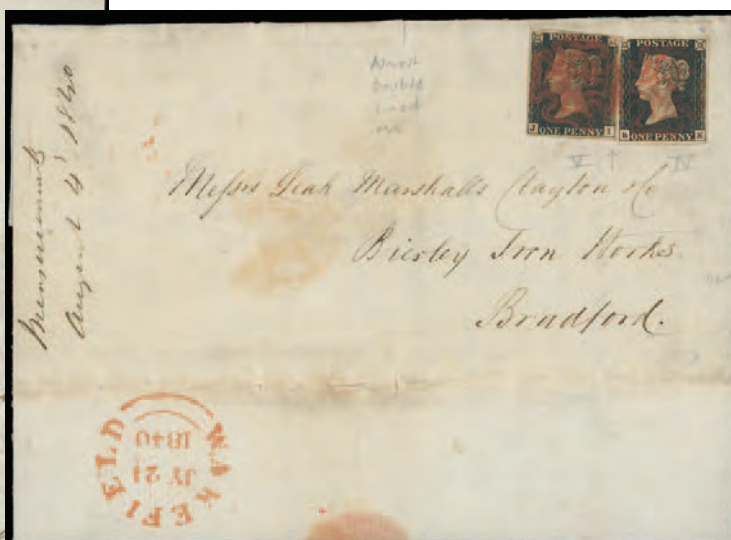 August 4th 1840
Almost
Double
Lined
POSTAGE
J I
ONE PENNY
POSTAGE
K
ONE PENNY
V ↑ IV
Messrs Leah Marshalls Clayton & Co
Bierley Iron Workes
Bradford.
WAKEFIELD
JY 21
1840